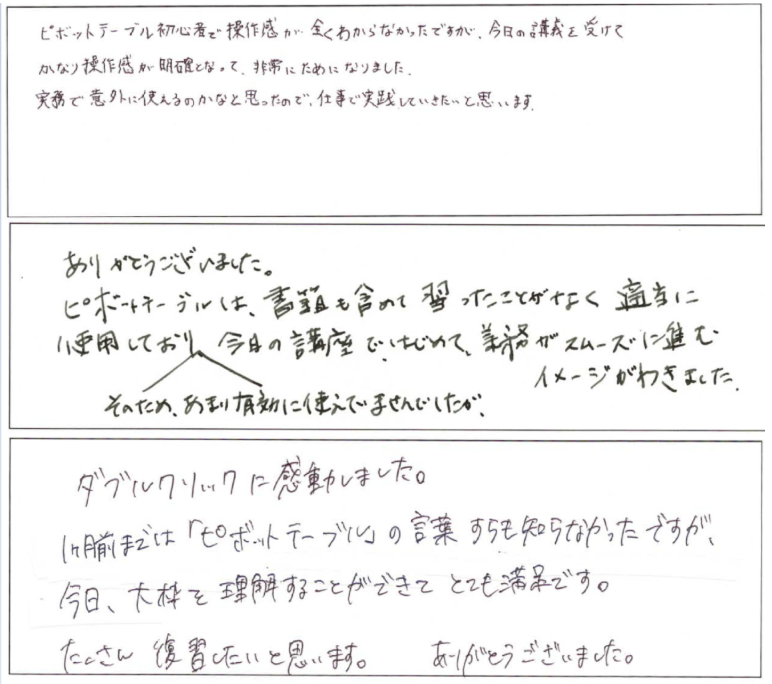 ピボットテーブル初心者で操作感が全くわからなかったですが、今日の講義を受けて
かなり操作感が明確となって、非常にためになりました。
実務で意外に使えるのかなと思ったので、仕事で実践していきたいと思います。
ありがとうございました。
ピボットテーブルは、書籍も含めて習ったことがなく適当に
使用しており、今日の講座ではじめて、業務がスムーズに進む
イメージがわきました。
そのため、あまり有効に使えてませんでしたが、
ダブルクリックに感動しました。
1ヶ月前までは「ピボットテーブル」の言葉すらも知らなかったですが、
今日、大枠を理解することができてとても満足です。
たくさん復習したいと思います。 ありがとうございました。